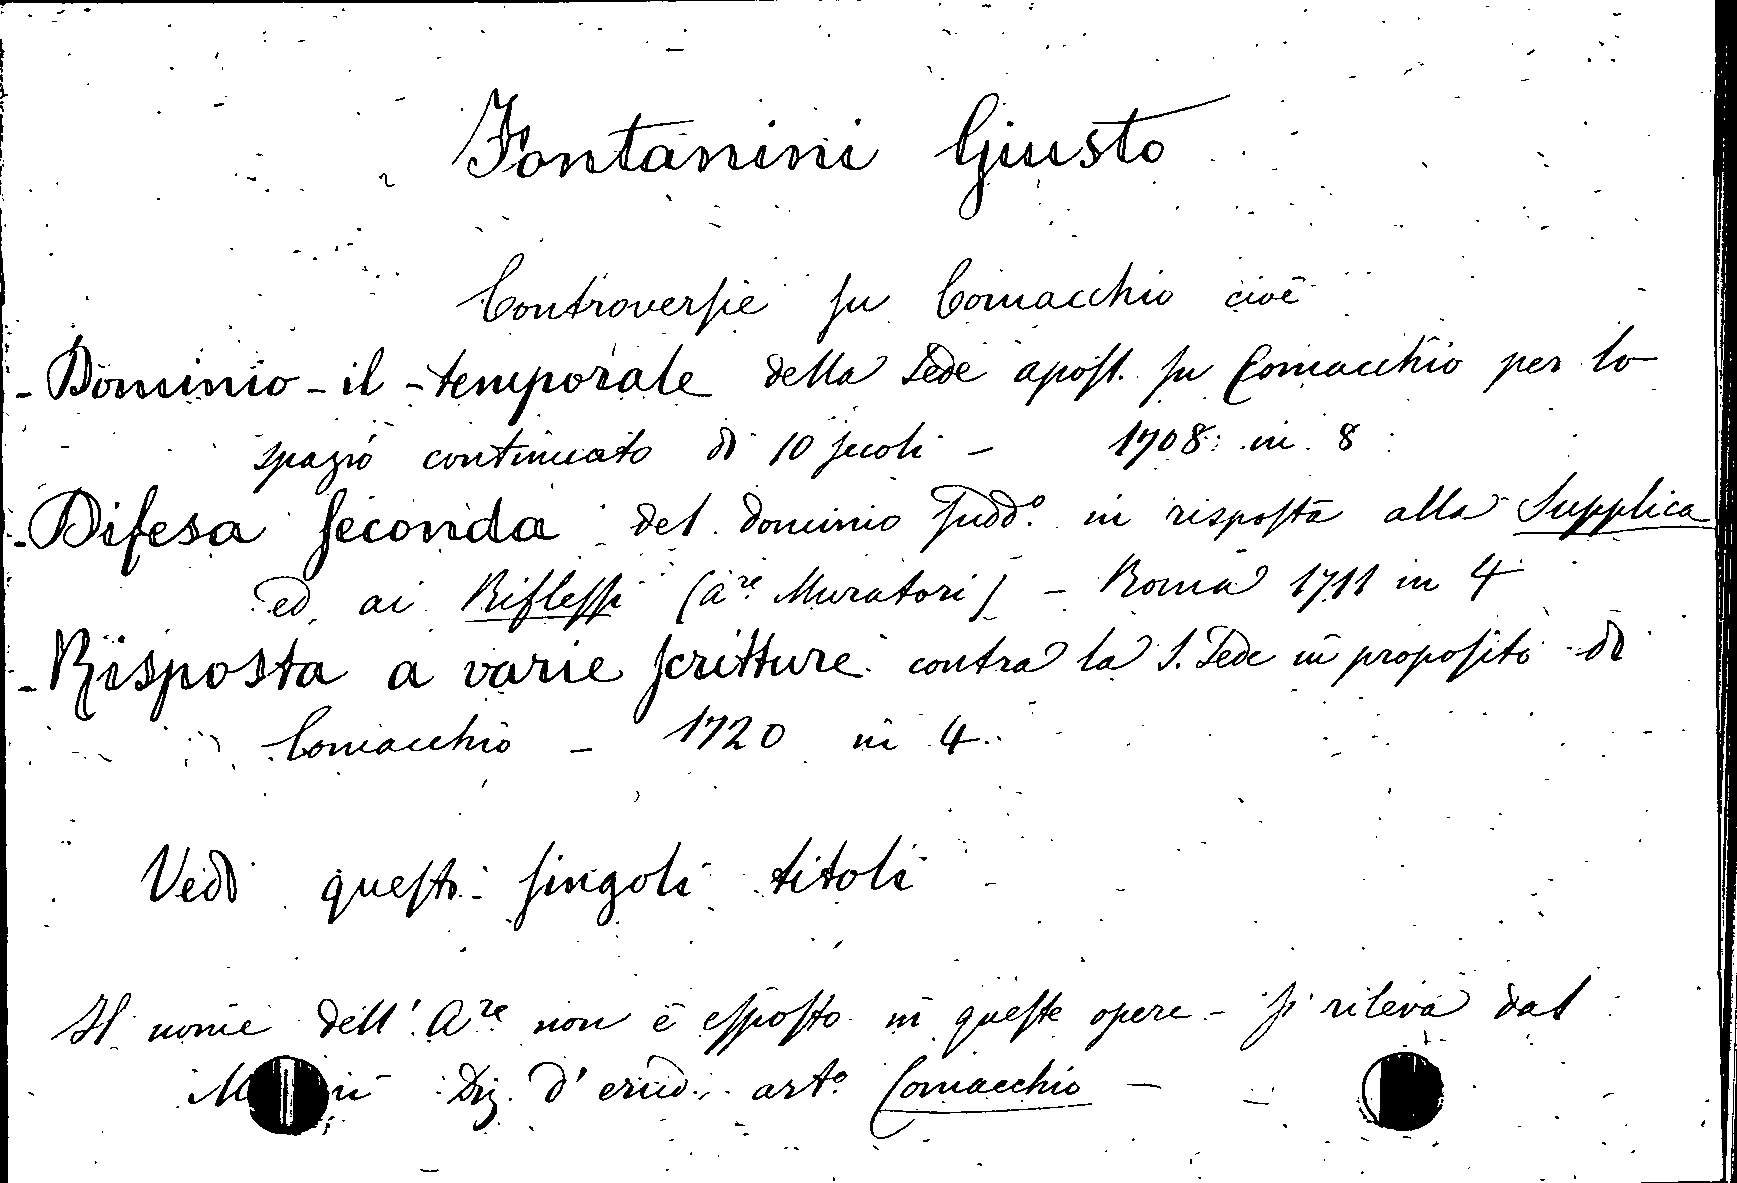 Fontanini Giusto
Controversie su Comacchio cioè
- Dominio - il - temporale della Sede apost. su Comacchio per lo
spazio continuato di 10 secoli - 1708 in 8
- Difesa seconda del dominio sudd.º in risposta alla Supplica
ed ai Riflessi (a.re Muratori) - Roma 1711 in 4
- Risposta a varie scritture contra la S. Sede in proposito di
Comacchio - 1720 in 4.
Vedi questi singoli titoli
Il nome dell' Are non è esposto in queste opere - si rileva dal
Diz. d' erud. art.º Comacchio -